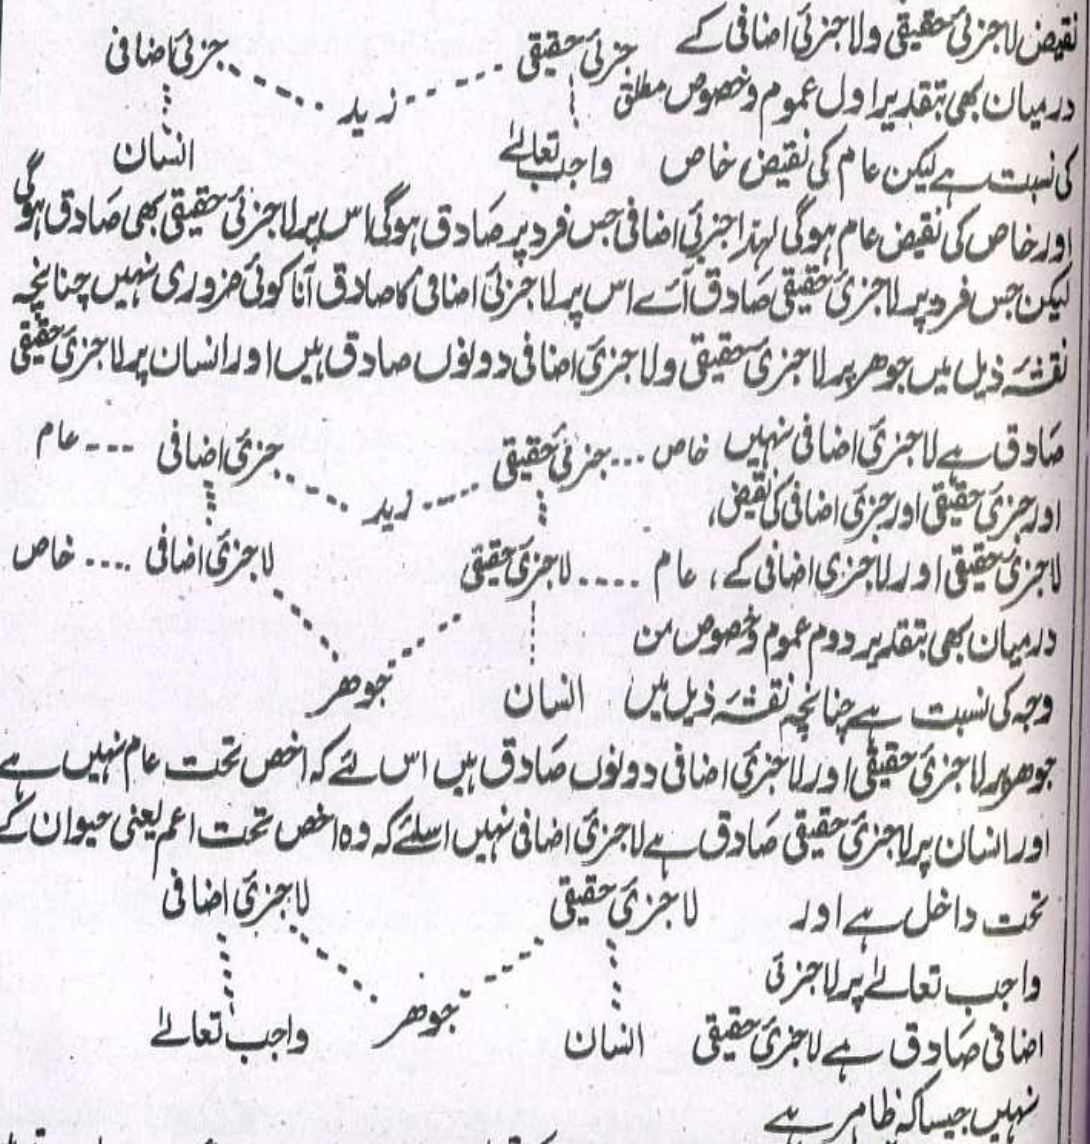 نقیض لا جزئی حقیقی ولا جزئی اضافی کے جزئی حقیقی جزئی اضافی
درمیان بھی بتقدیر اول عموم وخصوص مطلق زید
کی نسبت ہے لیکن عام کی نقیض خاص واجب تعالےٰ انسان
اور خاص کی نقیض عام ہوگی لہذا جزئی اضافی جس فرد پر صادق ہوگی اس پر لا جزئی حقیقی بھی صادق ہوگی
لیکن جس فرد پر لا جزئی حقیقی صادق آئے اس پر لا جزئی اضافی کا صادق آنا کوئی ضروری نہیں چنانچہ
نقشہ ذیل میں جوھر پر لا جزئ حقیقی ولا جزئ اضافی دونوں صادق ہیں اور انسان پر لا جزئ حقیقی
صادق ہے لا جزئ اضافی نہیں خاص ... جزئی حقیقی جزئ اضافی --- عام
اور جزئ حقیقی اور جزئ اضافی کی نقیض، زید
لا جزئ حقیقی اور لا جزئ اضافی کے، عام .... لا جزئ حقیقی لا جزئ اضافی .... خاص
درمیان بھی بتقدیر دوم عموم وخصوص من
وجہ کی نسبت ہے چنانچہ نقشہ ذیل میں انسان جوھر
جوھر پر لا جزئ حقیقی اور لا جزئ اضافی دونوں صادق ہیں اس لئے کہ اخص تحت عام نہیں ہے
اور انسان پر لا جزئ حقیقی صادق ہے لا جزئ اضافی نہیں اسلئے کہ وہ اخص تحت اعم یعنی حیوان کے
تحت داخل ہے اور لا جزئ حقیقی لا جزئ اضافی
واجب تعالےٰ پر لا جزئی
اضافی صادق ہے لا جزئ حقیقی انسان جوھر واجب تعالےٰ
نہیں جیسا کہ ظاہر ہے